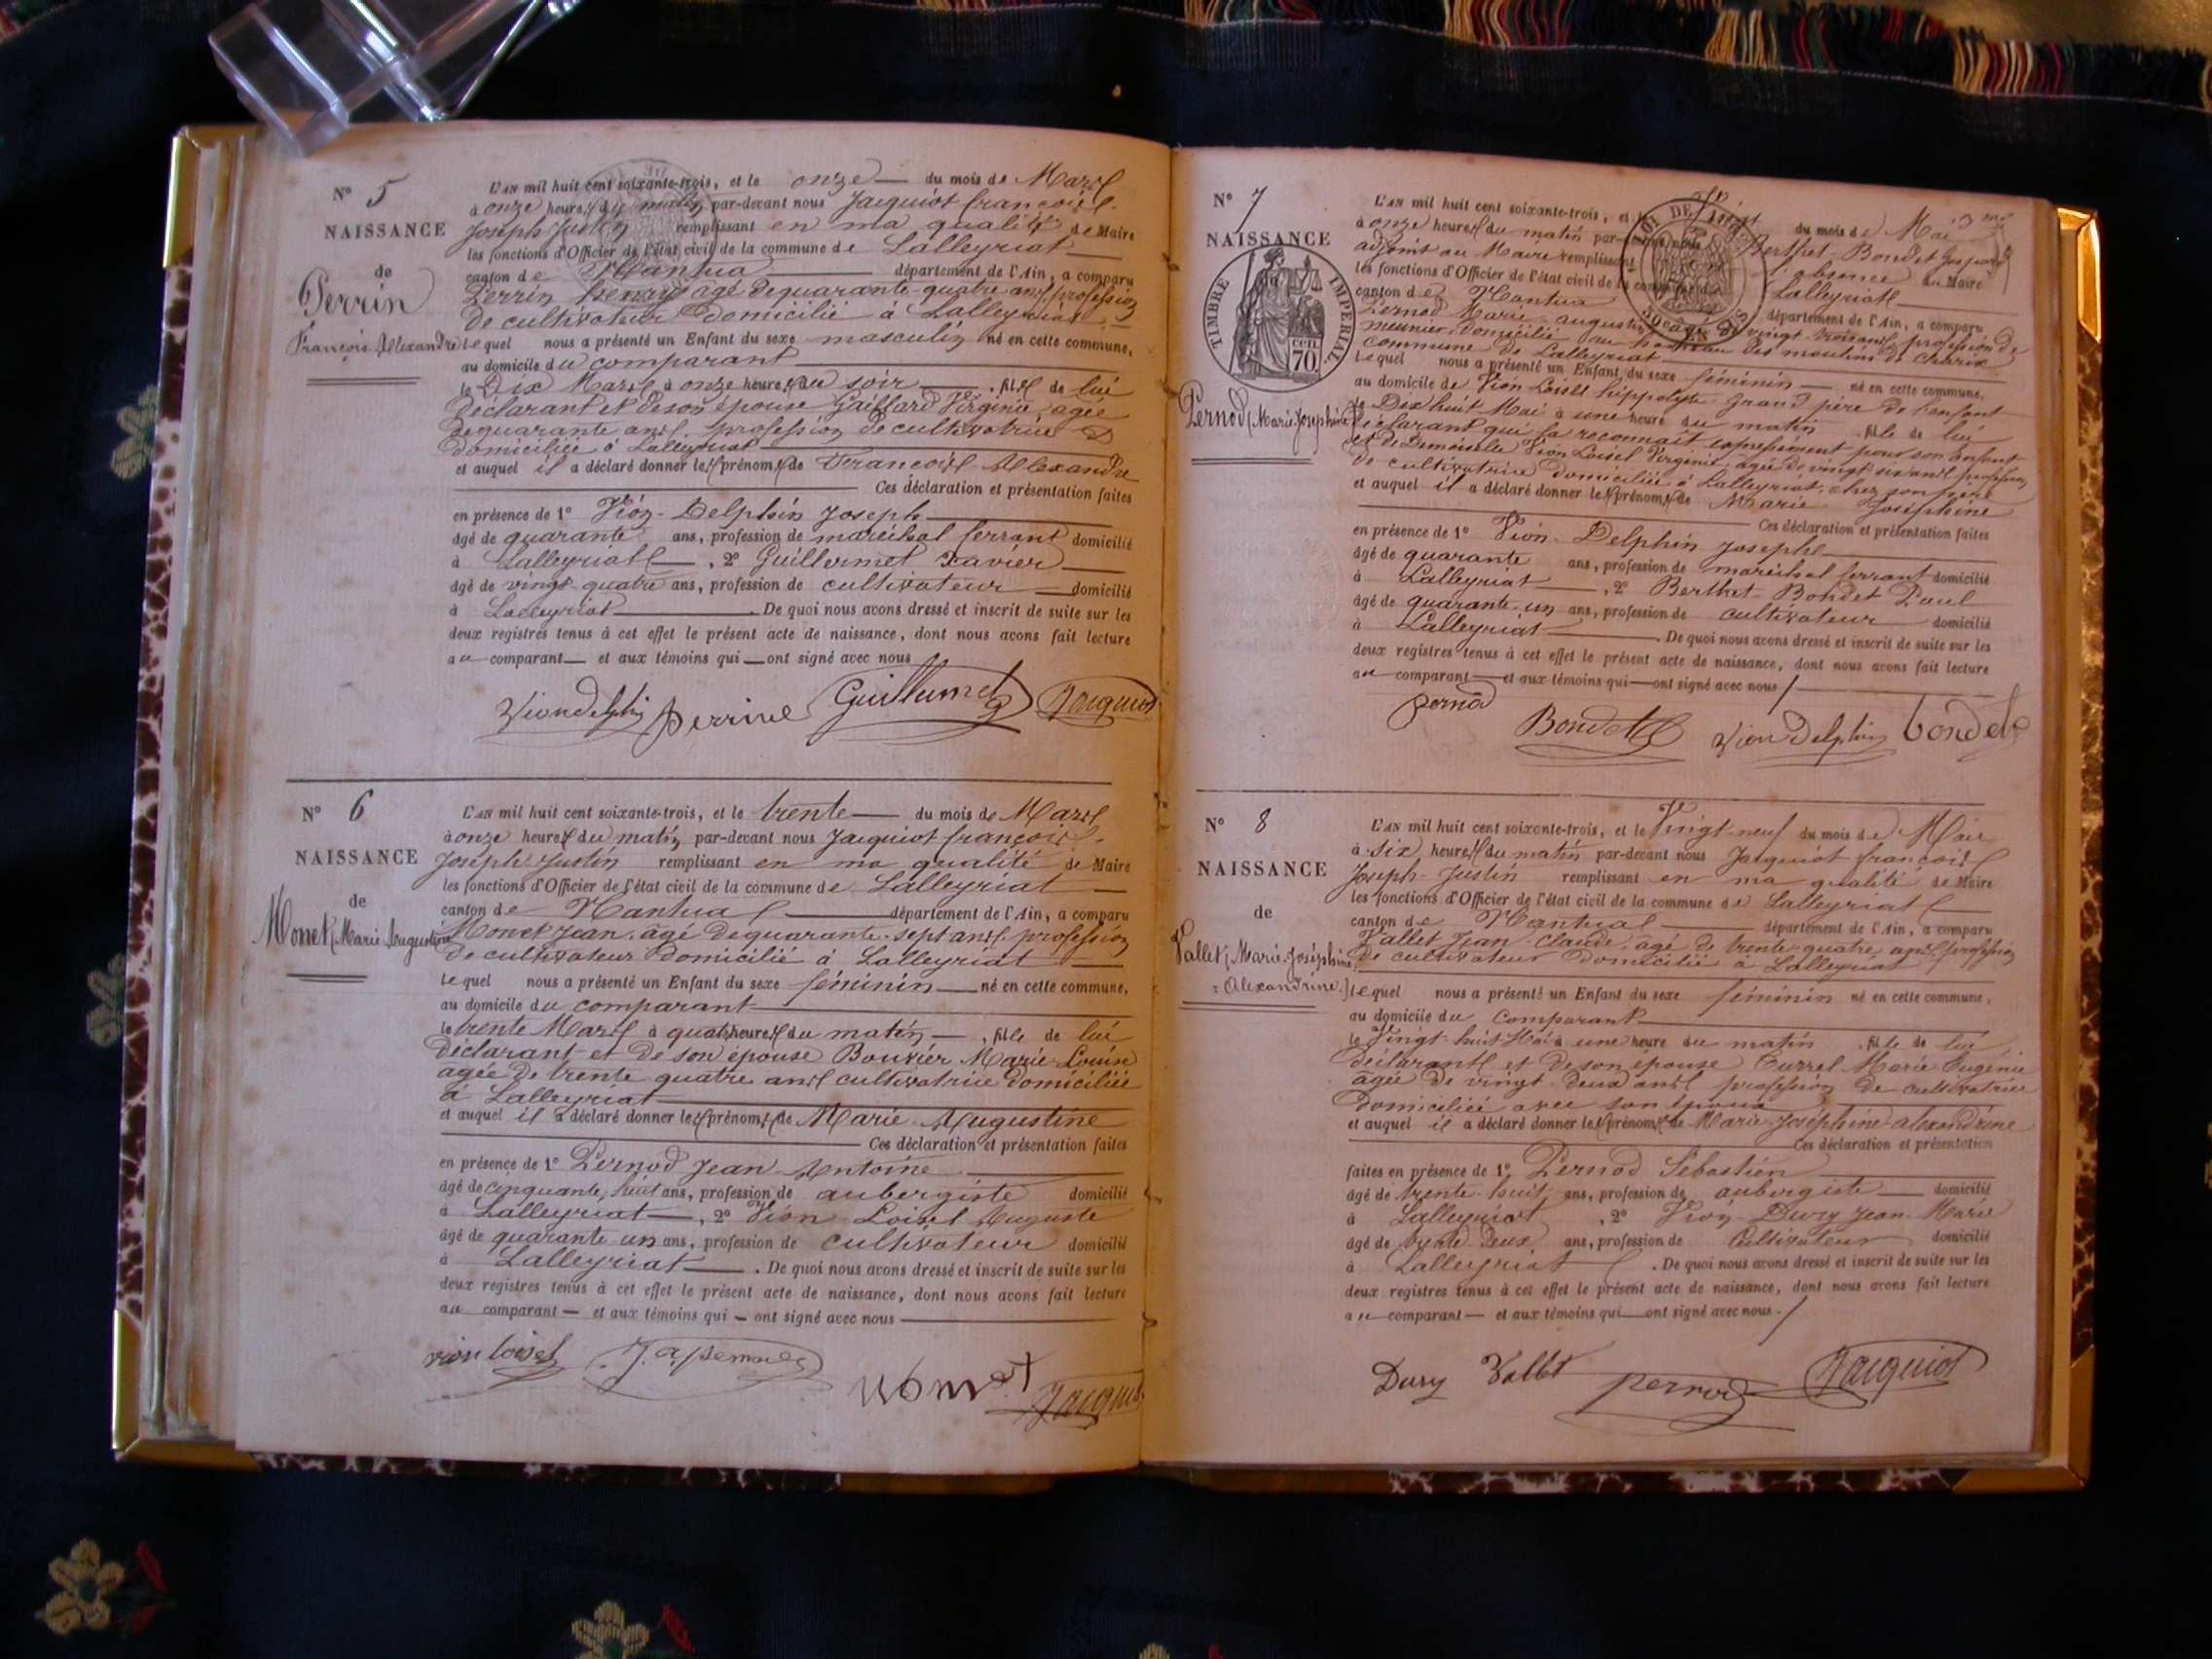 N° 5
NAISSANCE
de
Perrin
François Alexandre
L'AN mil huit cent soixante-trois, et le onze du mois de Mars
à onze heures du matin par-devant nous Jacquiot françois
Joseph Justin remplissant en ma qualité de Maire
les fonctions d'Officier de l'état civil de la commune de Lalleyriat
canton de Nantua département de l'Ain, a comparu
Perrin henry agé de quarante-quatre ans, profession
De cultivateur Domicilié à Lalleyriat
lequel nous a présenté un Enfant du sexe masculin né en cette commune,
au domicile du comparant
le Dix Mars à onze heures du soir, fils de lui
déclarant et de son épouse Gaillard Virginie, agée
de quarante ans, profession de cultivatrice
domiciliée à Lalleyriat
et auquel il a déclaré donner les prénoms de François Alexandre
Ces déclaration et présentation faites
en présence de 1° Vion-Delphin Joseph
âgé de quarante ans, profession de maréchal ferrant domicilié
à Lalleyriat, 2° Guillermet Xavier
âgé de vingt-quatre ans, profession de cultivateur domicilié
à Lalleyriat. De quoi nous avons dressé et inscrit de suite sur les
deux registres tenus à cet effet le présent acte de naissance, dont nous avons fait lecture
au comparant et aux témoins qui ont signé avec nous
Vion delphin perrin Guillermet Jacquiot
N° 6
NAISSANCE
de
Monet Marie Augustine
L'AN mil huit cent soixante-trois, et le trente du mois de Mars
à onze heures du matin par-devant nous Jacquiot françois
Joseph Justin remplissant en ma qualité de Maire
les fonctions d'Officier de l'état civil de la commune de Lalleyriat
canton de Nantua département de l'Ain, a comparu
Monet Jean, âgé de quarante-sept ans, profession
de cultivateur Domicilié à Lalleyriat
lequel nous a présenté un Enfant du sexe féminin né en cette commune,
au domicile du comparant
le trente Mars à quatre heures du matin, fille de lui
déclarant et de son épouse Bouvier Marie-Louise
agée De trente quatre ans cultivatrice Domiciliée
à Lalleyriat
et auquel il a déclaré donner les prénoms de Marie-Augustine
Ces déclaration et présentation faites
en présence de 1° Pernod Jean-Antoine
âgé de cinquante, huit ans, profession de aubergiste domicilié
à Lalleyriat, 2° Vion-Loisel Auguste
âgé de quarante-un ans, profession de cultivateur domicilié
à Lalleyriat. De quoi nous avons dressé et inscrit de suite sur les
deux registres tenus à cet effet le présent acte de naissance, dont nous avons fait lecture
au comparant — et aux témoins qui — ont signé avec nous
vion loisel J. a. pernod monet Jacquiot
N° 7
NAISSANCE
TIMBRE IMPERIAL
CEN. 70
Pernod Marie Joséphine
L'AN mil huit cent soixante-trois, et le du mois de Mai
à onze heures du matin par-devant nous Berthet-Bondet
adjoint au Maire remplissant absence du Maire
les fonctions d'Officier de l'état civil de la commune de Lalleyriat
canton de Nantua département de l'Ain, a comparu
Pernod Marie-augustin agé de vingt-trois ans, profession de
meunier, domicilié au hameau des moulins de Charix
commune de Lalleyriat
lequel nous a présenté un Enfant du sexe féminin né en cette commune,
au domicile de Vion Loisel hippolyte Grand père de l'enfant
le Dix huit Mai à une heure du matin, fille de lui
déclarant qui la reconnaît expressément pour son Enfant
et de Demoiselle Vion Loisel Virginie, agée de vingt-six ans, profession
de cultivatrice domiciliée à Lalleyriat chez son père
et auquel il a déclaré donner les prénoms de Marie Joséphine
Ces déclaration et présentation faites
en présence de 1° Vion-Delphin Joseph
âgé de quarante ans, profession de maréchal ferrant domicilié
à Lalleyriat, 2° Berthet-Bondet Paul
âgé de quarante-un ans, profession de cultivateur domicilié
à Lalleyriat. De quoi nous avons dressé et inscrit de suite sur les
deux registres tenus à cet effet le présent acte de naissance, dont nous avons fait lecture
au comparant — et aux témoins qui — ont signé avec nous
pernod Bondet Vion Delphin bondet
N° 8
NAISSANCE
de
Vallet, Marie-Joséphine
Alexandrine
L'AN mil huit cent soixante-trois, et le Vingt-neuf du mois de Mai
à six heures du matin par-devant nous Jacquiot françois
Joseph-Justin remplissant en ma qualité de Maire
les fonctions d'Officier de l'état civil de la commune de Lalleyriat
canton de Nantua département de l'Ain, a comparu
Vallet Jean-Claude, agé de trente-quatre ans, profession
De cultivateur Domicilié à Lalleyriat
lequel nous a présenté un Enfant du sexe féminin né en cette commune,
au domicile du comparant
le Vingt-huit Mai à une heure du matin, fille de lui
déclarant et de son épouse Currel Marie-Eugénie
agée de vingt-deux ans profession de cultivatrice
domiciliée avec son époux
et auquel il a déclaré donner les prénoms de Marie-Joséphine-alexandrine
Ces déclaration et présentation
faites en présence de 1° Pernod Sébastien
âgé de trente-huit ans, profession de aubergiste domicilié
à Lalleyriat, 2° Vion-Dury Jean-Marie
âgé de trente-deux ans, profession de Cultivateur domicilié
à Lalleyriat. De quoi nous avons dressé et inscrit de suite sur les
deux registres tenus à cet effet le présent acte de naissance, dont nous avons fait lecture
au comparant — et aux témoins qui ont signé avec nous.
Dury Vallet pernod Jacquiot